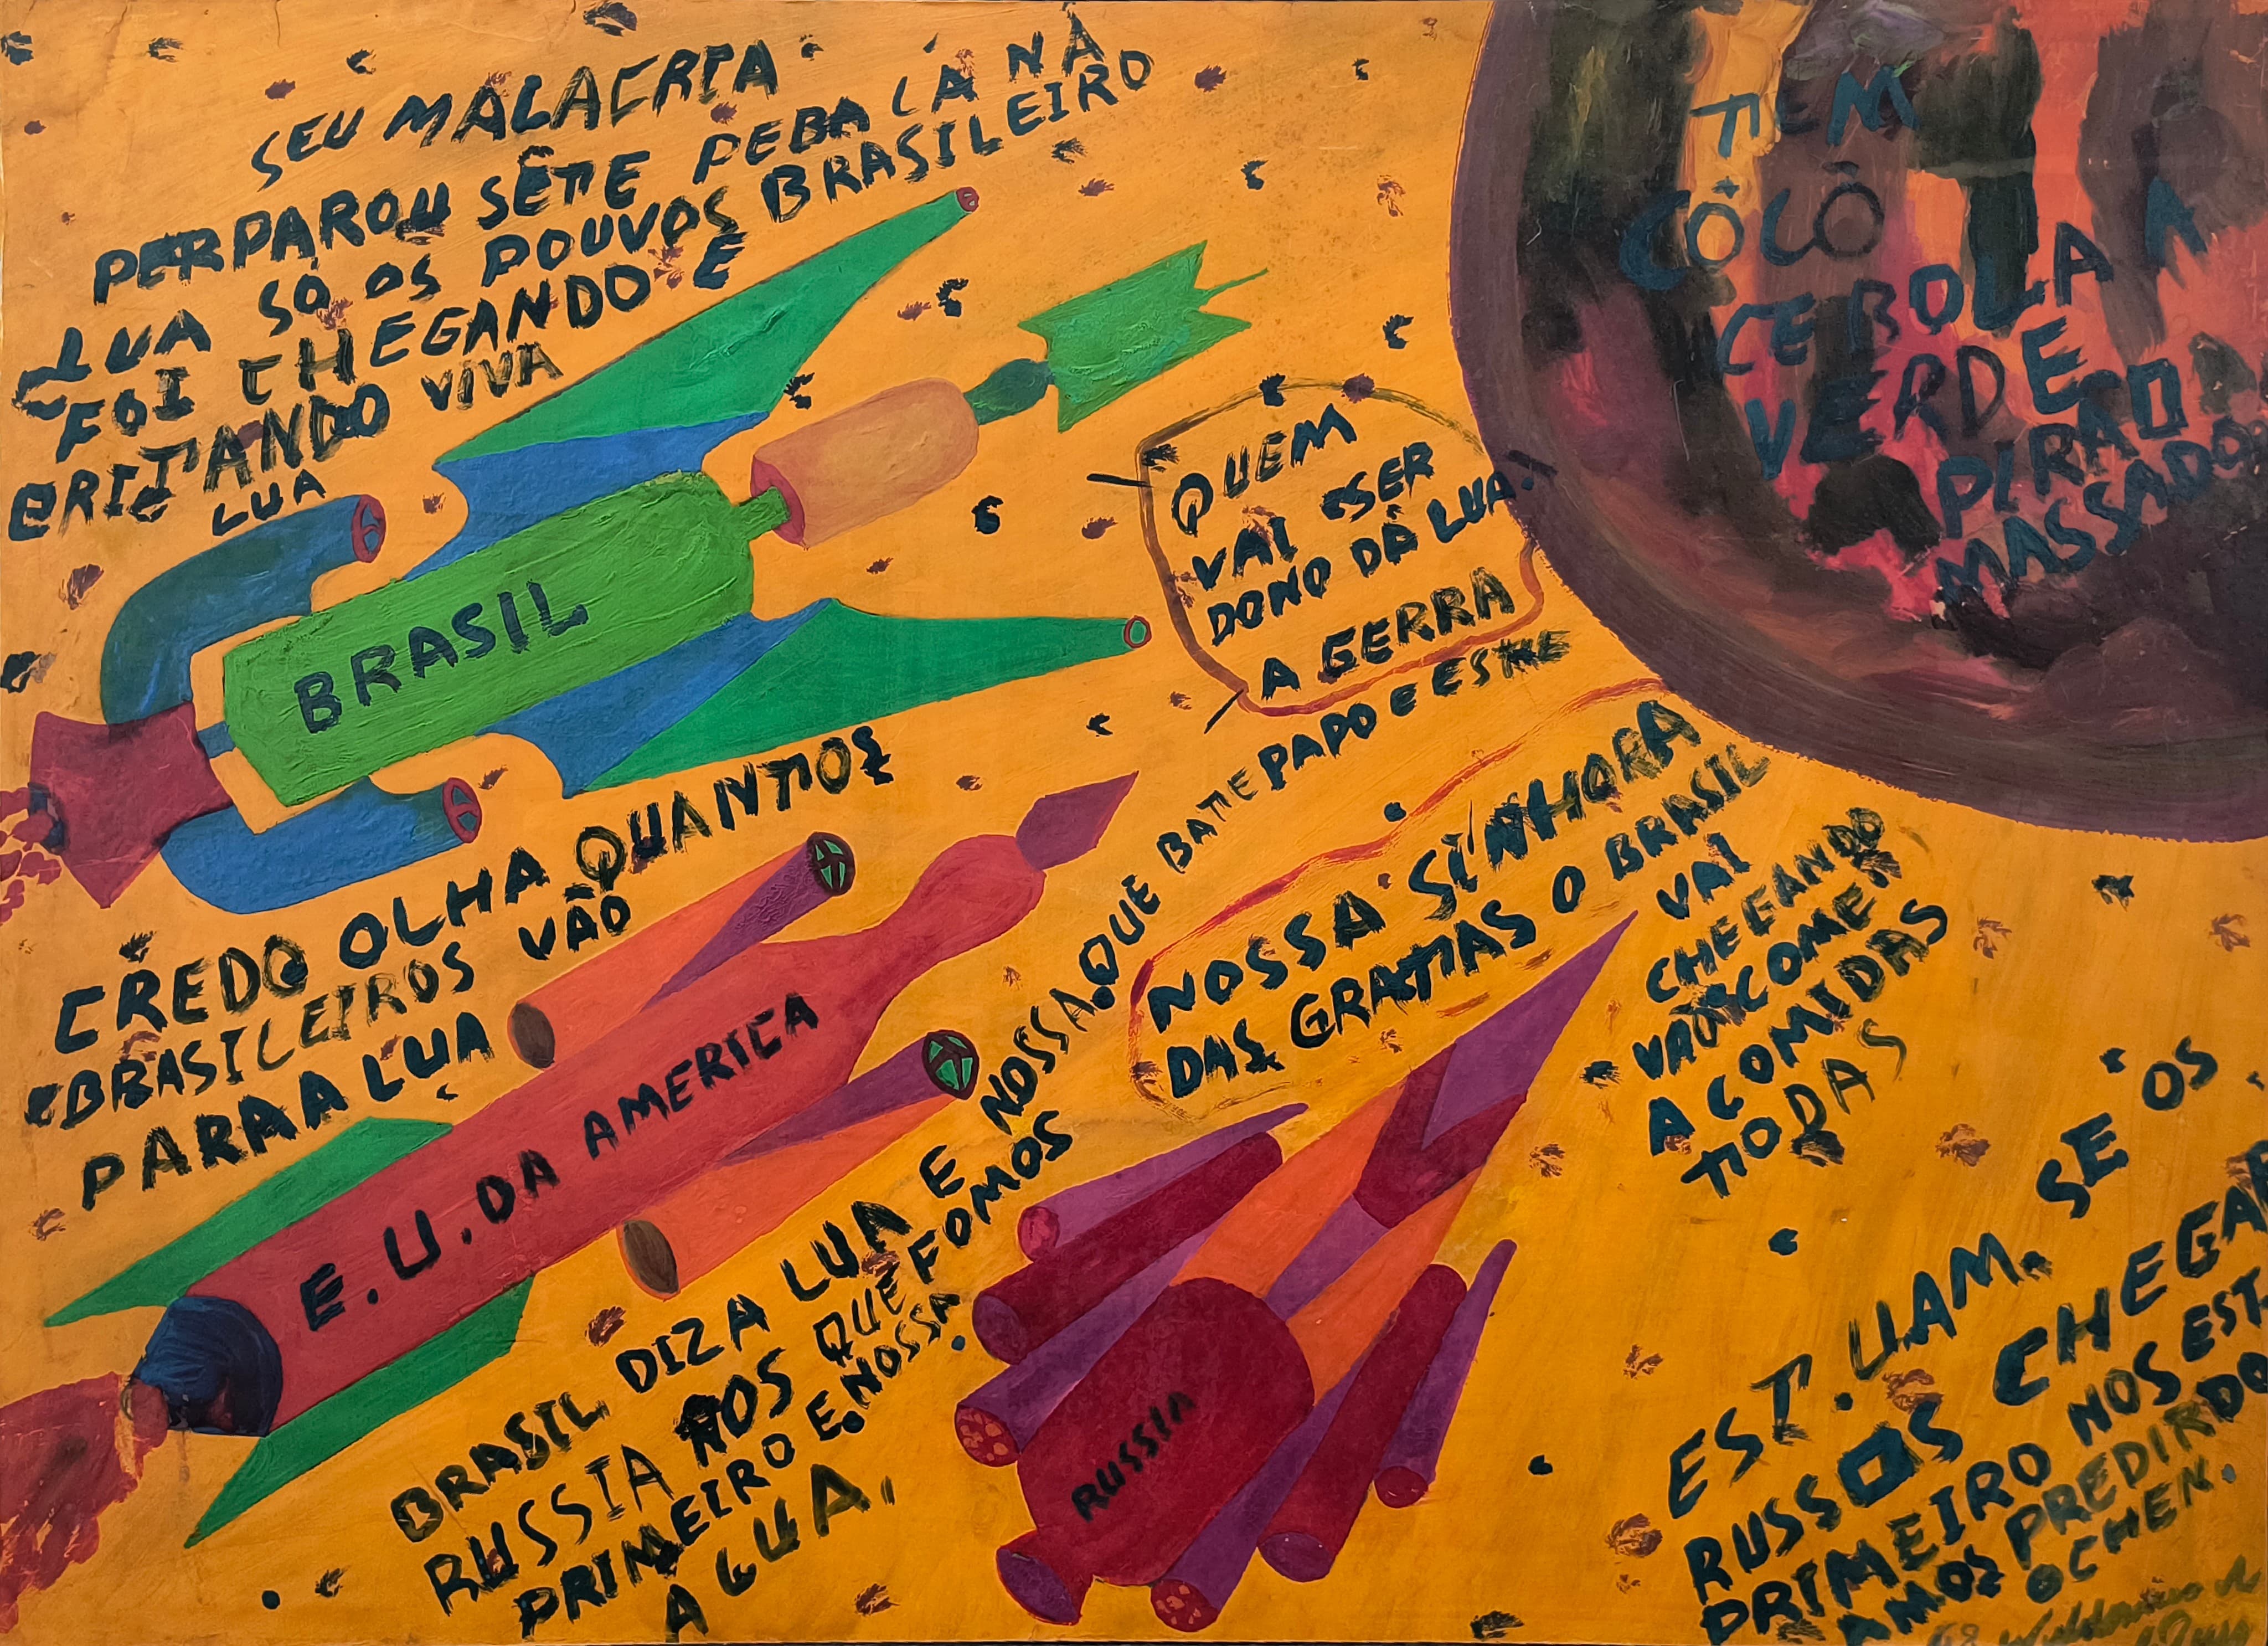 SEU MALACRIA
PERPAROU SÊTE PEBA LÁ NA
LUA SÓ OS POUVOS BRASILEIRO
FOI CHEGANDO E
GRITANDO VIVA
LUA
TEM
CÔCÔ
CEBOLA A
VERDE
PIRÃO
MASSADOR
BRASIL
QUEM
VAI SER
DONO DA LUA
A GERRA
QUE BATE PAPO E ESTRE
CREDO OLHA QUANTOS
BRASILEIROS VÃO
PARA A LUA
E.U.DA AMERICA
NOSSA SINHORA
DAS GRATIAS O BRASIL
VAI
CHEGANDO
VAO COMER
A COMIDAS
TODAS
BRASIL DIZ A LUA E NOSSA.
RUSSIA NOS QUE FOMOS
PRIMEIRO E.NOSSA
A GUA,
RUSSIA
EST.UAM. SE OS
RUSSOS CHEGAR
PRIMEIRO NOS EST.
AMOS PREDIRDO
OCHEN.